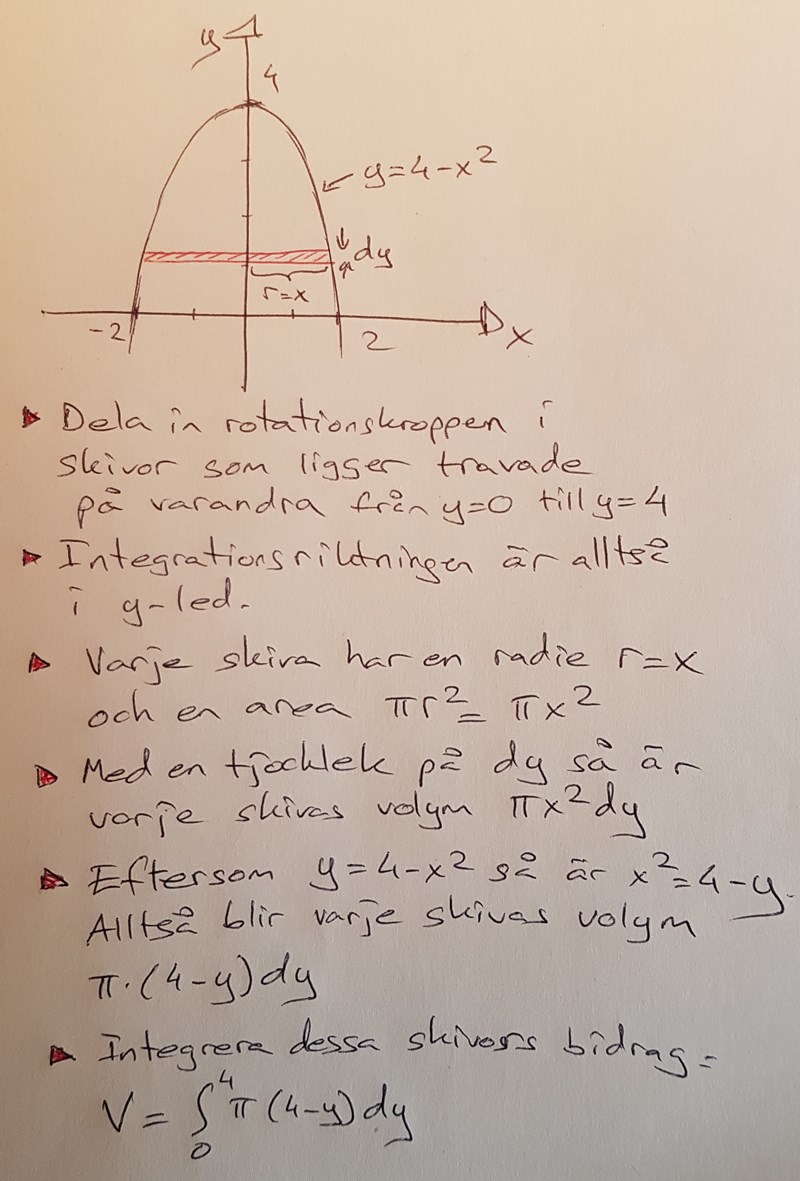 y
4
y=4-x²
dy
r=x
-2
2
x
Dela in rotationskroppen i
skivor som ligger travade
på varandra från y=0 till y=4
Integrationsriktningen är alltså
i y-led.
Varje skiva har en radie r=x
och en area πr²= πx²
Med en tjocklek på dy så är
varje skivas volym πx²dy
Eftersom y=4-x² så är x²=4-y.
Alltså blir varje skivas volym
π·(4-y)dy
Integrera dessa skivors bidrag=
V = ∫₀⁴ π(4-y)dy